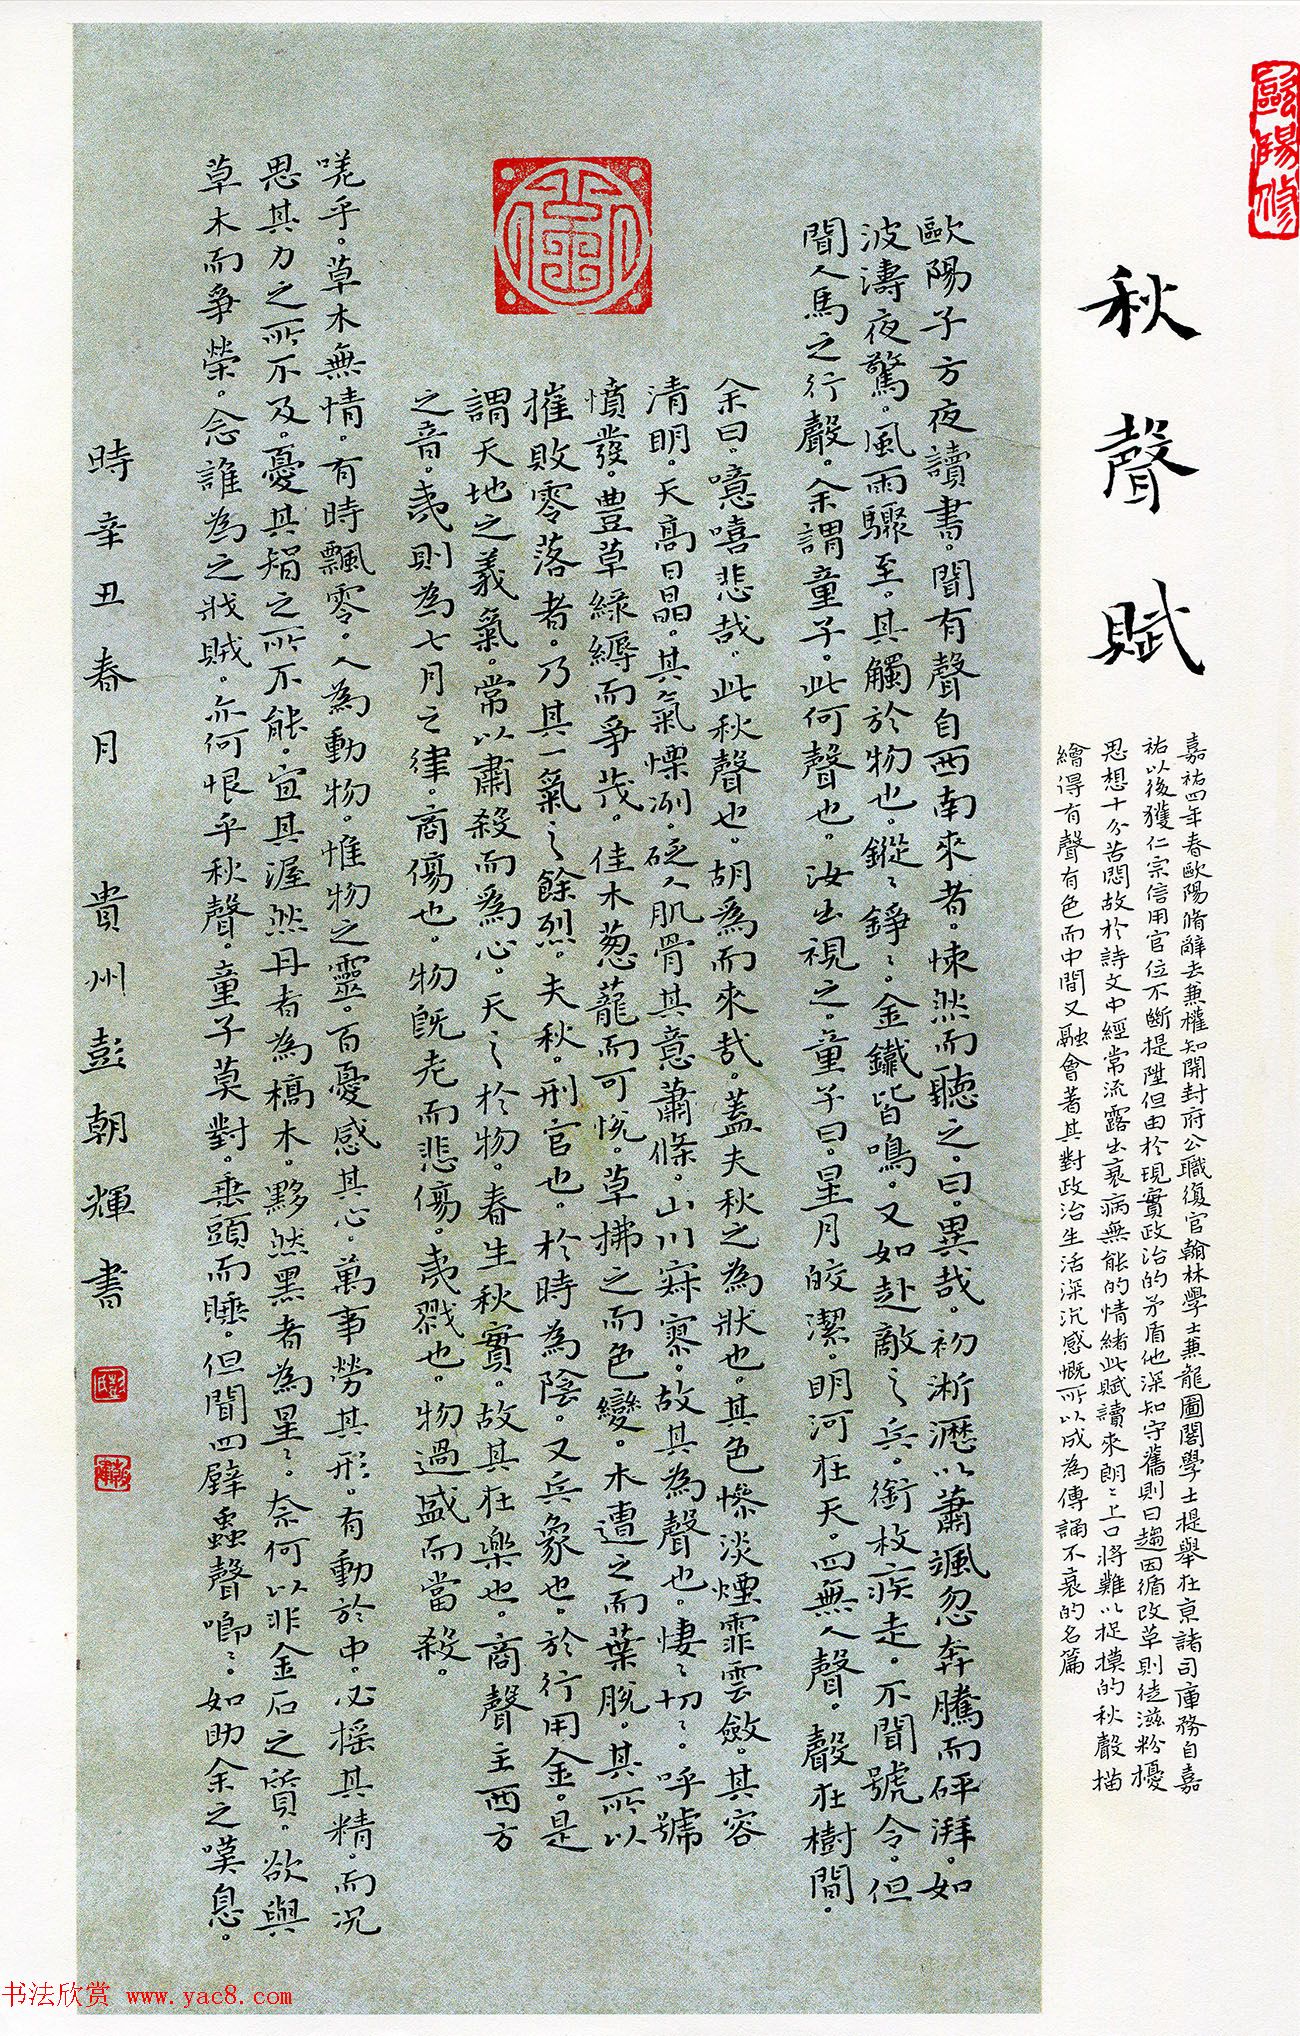 歐陽修
秋聲賦
嘉祐四年春歐陽脩辭去兼權知開封府公職復官翰林學士兼龍圖閣學士提舉在京諸司庫務自嘉
祐以後獲仁宗信用官位不斷提陞但由於現實政治的矛盾他深知守舊則日趨因循改草則徒滋粉擾
思想十分苦悶故於詩文中經常流露出衰病無能的情緒此賦讀來朗〻上口將難以捉摸的秋聲描
繪得有聲有色而中間又融會著其對政治生活深沉感慨所以成為傳誦不衰的名篇
歐陽子方夜讀書。聞有聲自西南來者。悚然而聽之。曰。異哉。初淅瀝以蕭颯忽奔騰而砰湃。如
波濤夜驚。風雨驟至。其觸於物也。鏦〻錚〻。金鐵皆鳴。又如赴敵之兵。銜枚疾走。不聞號令。但
聞人馬之行聲。余謂童子。此何聲也。汝出視之。童子曰。星月皎潔。明河在天。四無人聲。聲在樹間。
余曰。噫嘻悲哉。此秋聲也。胡為而來哉。蓋夫秋之為狀也。其色慘淡煙霏雲斂。其容
清明。天高日晶。其氣慄冽。砭人肌骨其意蕭條。山川寂寥。故其為聲也。悽〻切〻。呼號
憤發。豐草綠縟而爭茂。佳木葱蘢而可悅。草拂之而色變。木遭之而葉脫。其所以
摧敗零落者。乃其一氣之餘烈。夫秋。刑官也。於時為陰。又兵象也。於行用金。是
謂天地之義氣。常以肅殺而為心。天之於物。春生秋實。故其在樂也。商聲主西方
之音。夷則為七月之律。商傷也。物既老而悲傷。夷戮也。物過盛而當殺。
嗟乎。草木無情。有時飄零。人為動物。惟物之靈。百憂感其心。萬事勞其形。有動於中。必搖其精。而況
思其力之所不及。憂其智之所不能。宜其渥然丹者為槁木。黟然黑者為星〻。奈何以非金石之質。欲與
草木而爭榮。念誰為之戕賊。亦何恨乎秋聲。童子莫對。垂頭而睡。但聞四壁蟲聲唧〻。如助余之嘆息。
時辛丑春月 貴州彭朝輝書
书法欣赏 www.yac8.com